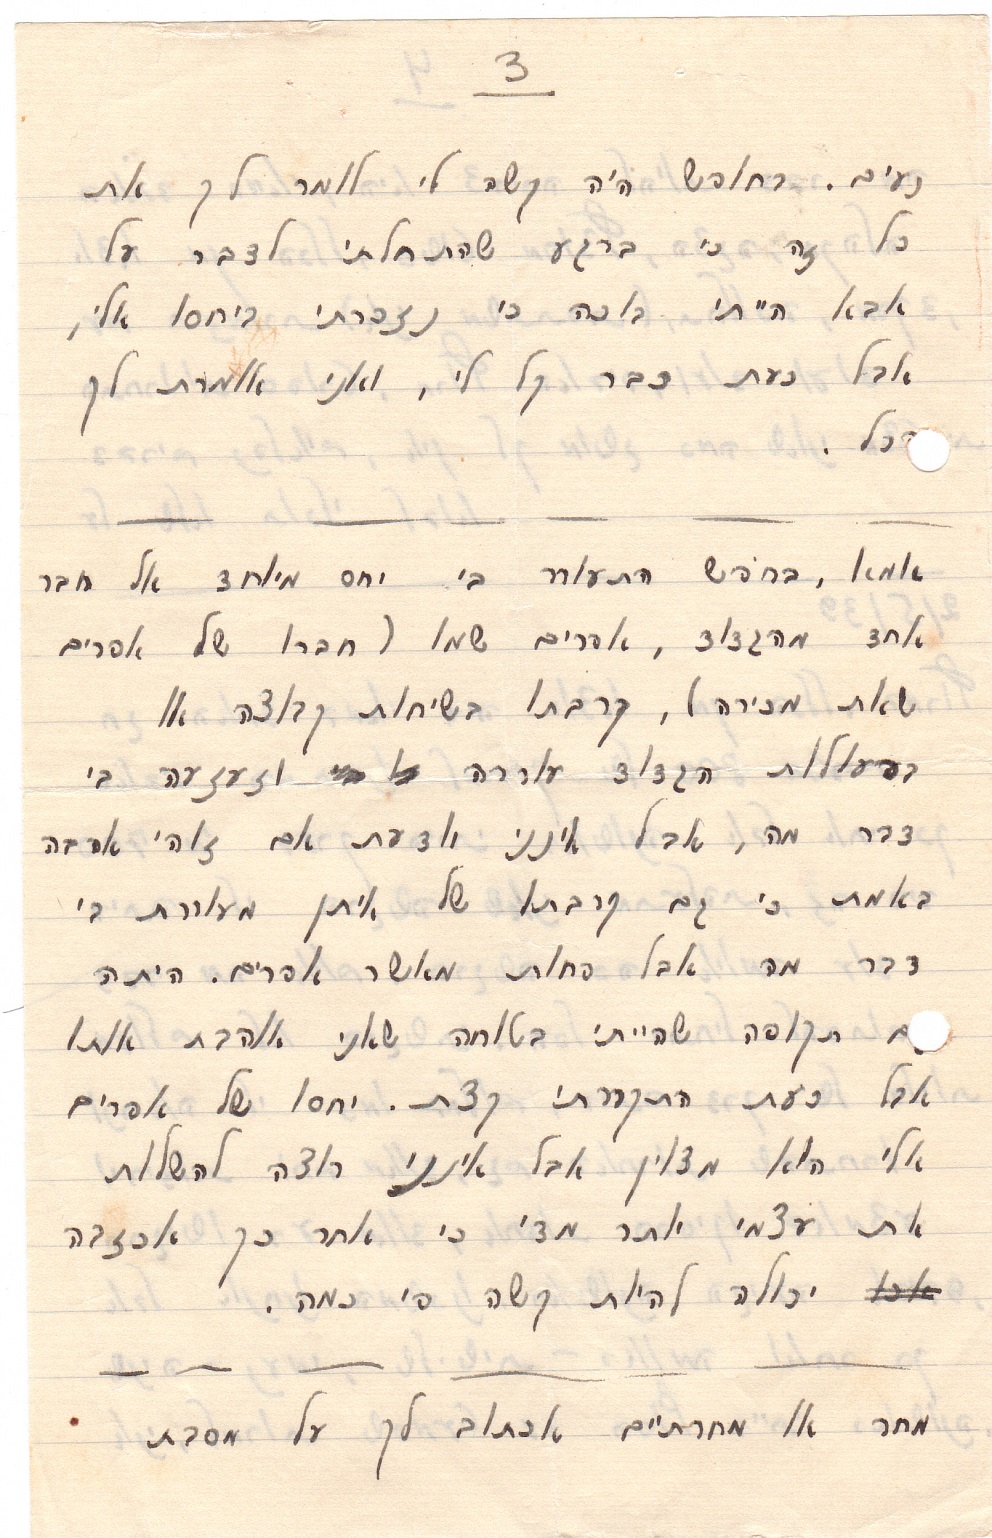 3
נעים. בחופש היה קשה לי לומר לך את
כל זה כי ברגע שהתחלתי לדבר על
אבא הייתי בוכה כי נזכרתי ביחסו אלי,
אבל כעת כבר קל לי, ואני אומרת לך
הכל.
אמא, בחפש התעורר בי יחס מיוחד אל חבר
אחד מהגדוד, אפרים שמו (חברו של אפרים
שאת מכירה), קרבתו בשיחות קבוצה או
בפעולות הגדוד עוררה וזעזעה בי
דבר מה, אבל אינני יודעת אם זוהי אהבה
באמת כי גם קרבתו של איתן מעוררת בי
דבר מה אבל פחות מאשר אפרים. היתה
גם תקופה שהייתי בטוחה שאני אוהבת אותו
אבל כעת התקררתי קצת. יחסו של אפרים
אלי הוא מצוין אבל אינני רוצה להשלות
את עצמי יותר מדי כי אחר כך אכזבה
יכולה להיות קשה פי כמה.
מחר או מחרתיים אכתוב לך על מסבת